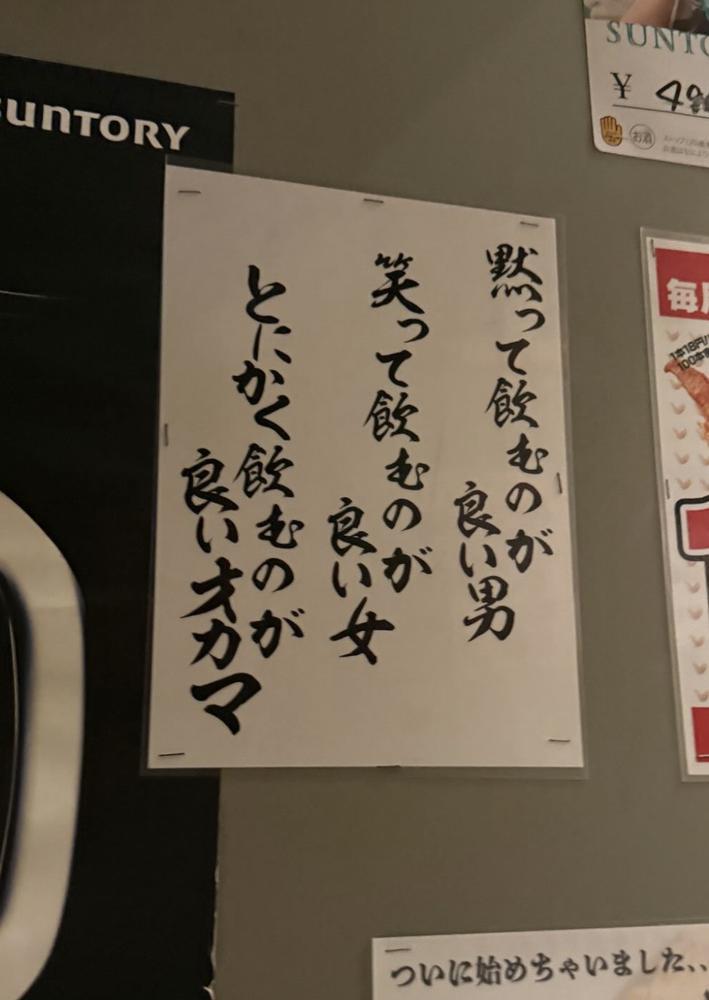 SUNTORY
黙って飲むのが
良い男
笑って飲むのが
良い女
とにかく飲むのが
良いオカマ
¥
お酒
ついに始めちゃいました、、